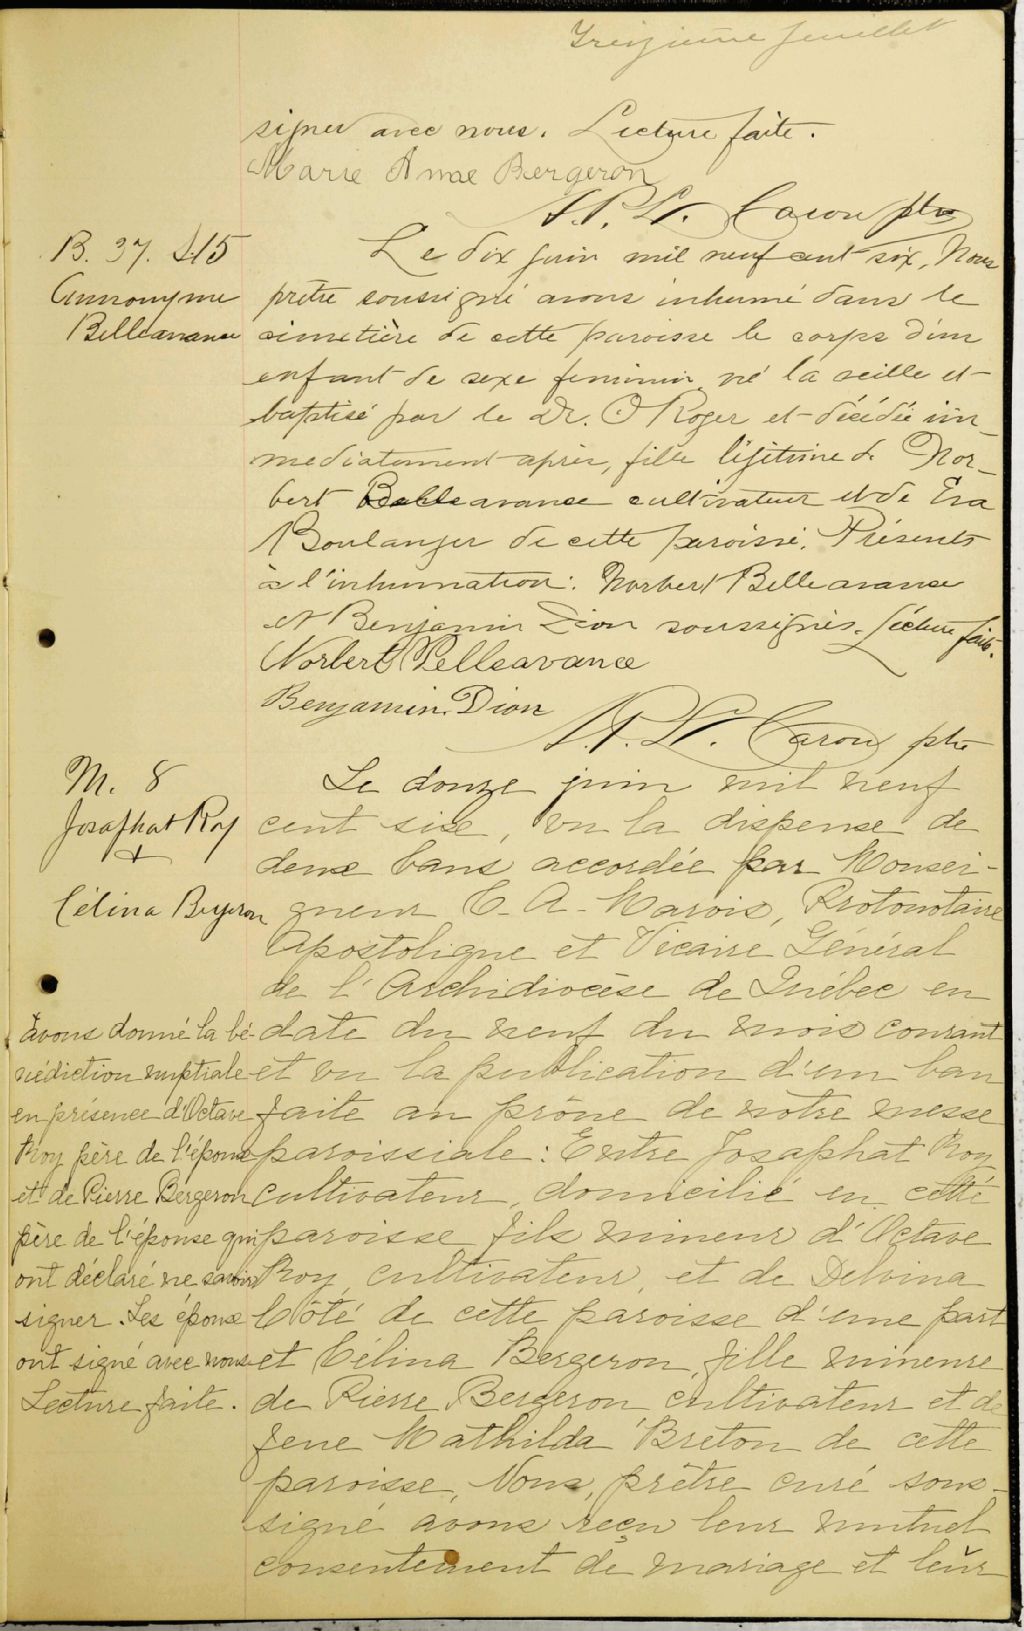 Treizième feuillet
signer avec nous. Lecture faite.
Marie Anne Bergeron
A.P.L. Caron ptre
B. 37. S.15
Annonyme
Belleavance
Le dix juin mil neuf cent six, Nous
prêtre soussigné avons inhumé dans le
cimetière de cette paroisse le corps d'un
enfant de sexe feminin né la veille et
baptisé par le Dr. O Roger et décédée im-
mediatement après, fille légitime de Nor-
bert Belleavance cultivateur et de Eva
Boulanger de cette paroisse. Présents
à l'inhumation: Norbert Belleavance
et Benjamin Dion soussignés. Lecture faite.
Norbert Belleavance
Benjamin Dion
A.P.L. Caron ptre
M. 8
Josaphat Roy
+
Célina Bergeron
Le douze juin mil neuf
cent six, vu la dispense de
deux bans accordée par Monsei-
gneur C. A. Marois, Protonotaire
Apostolique et Vicaire Général
de l'Archidiocèse de Québec en
date du neuf du mois courant
et vu la publication d'un ban
faite au prône de notre messe
paroissiale: Entre Josaphat Roy
cultivateur, domicilié en cette
paroisse fils mineur d'Octave
Roy, cultivateur et de Delvina
Côté de cette paroisse d'une part
et Célina Bergeron, fille mineure
de Pierre Bergeron cultivateur et de
feue Mathilda Breton de cette
paroisse, Nous, prêtre curé sous-
signé avons reçu leur mutuel
consentement de mariage et leur
avons donné la bé-
nédiction nuptiale
en présence d'Octave
Roy père de l'époux
et de Pierre Bergeron
père de l'épouse qui
ont déclaré ne savoir
signer. Les époux
ont signé avec nous
Lecture faite.